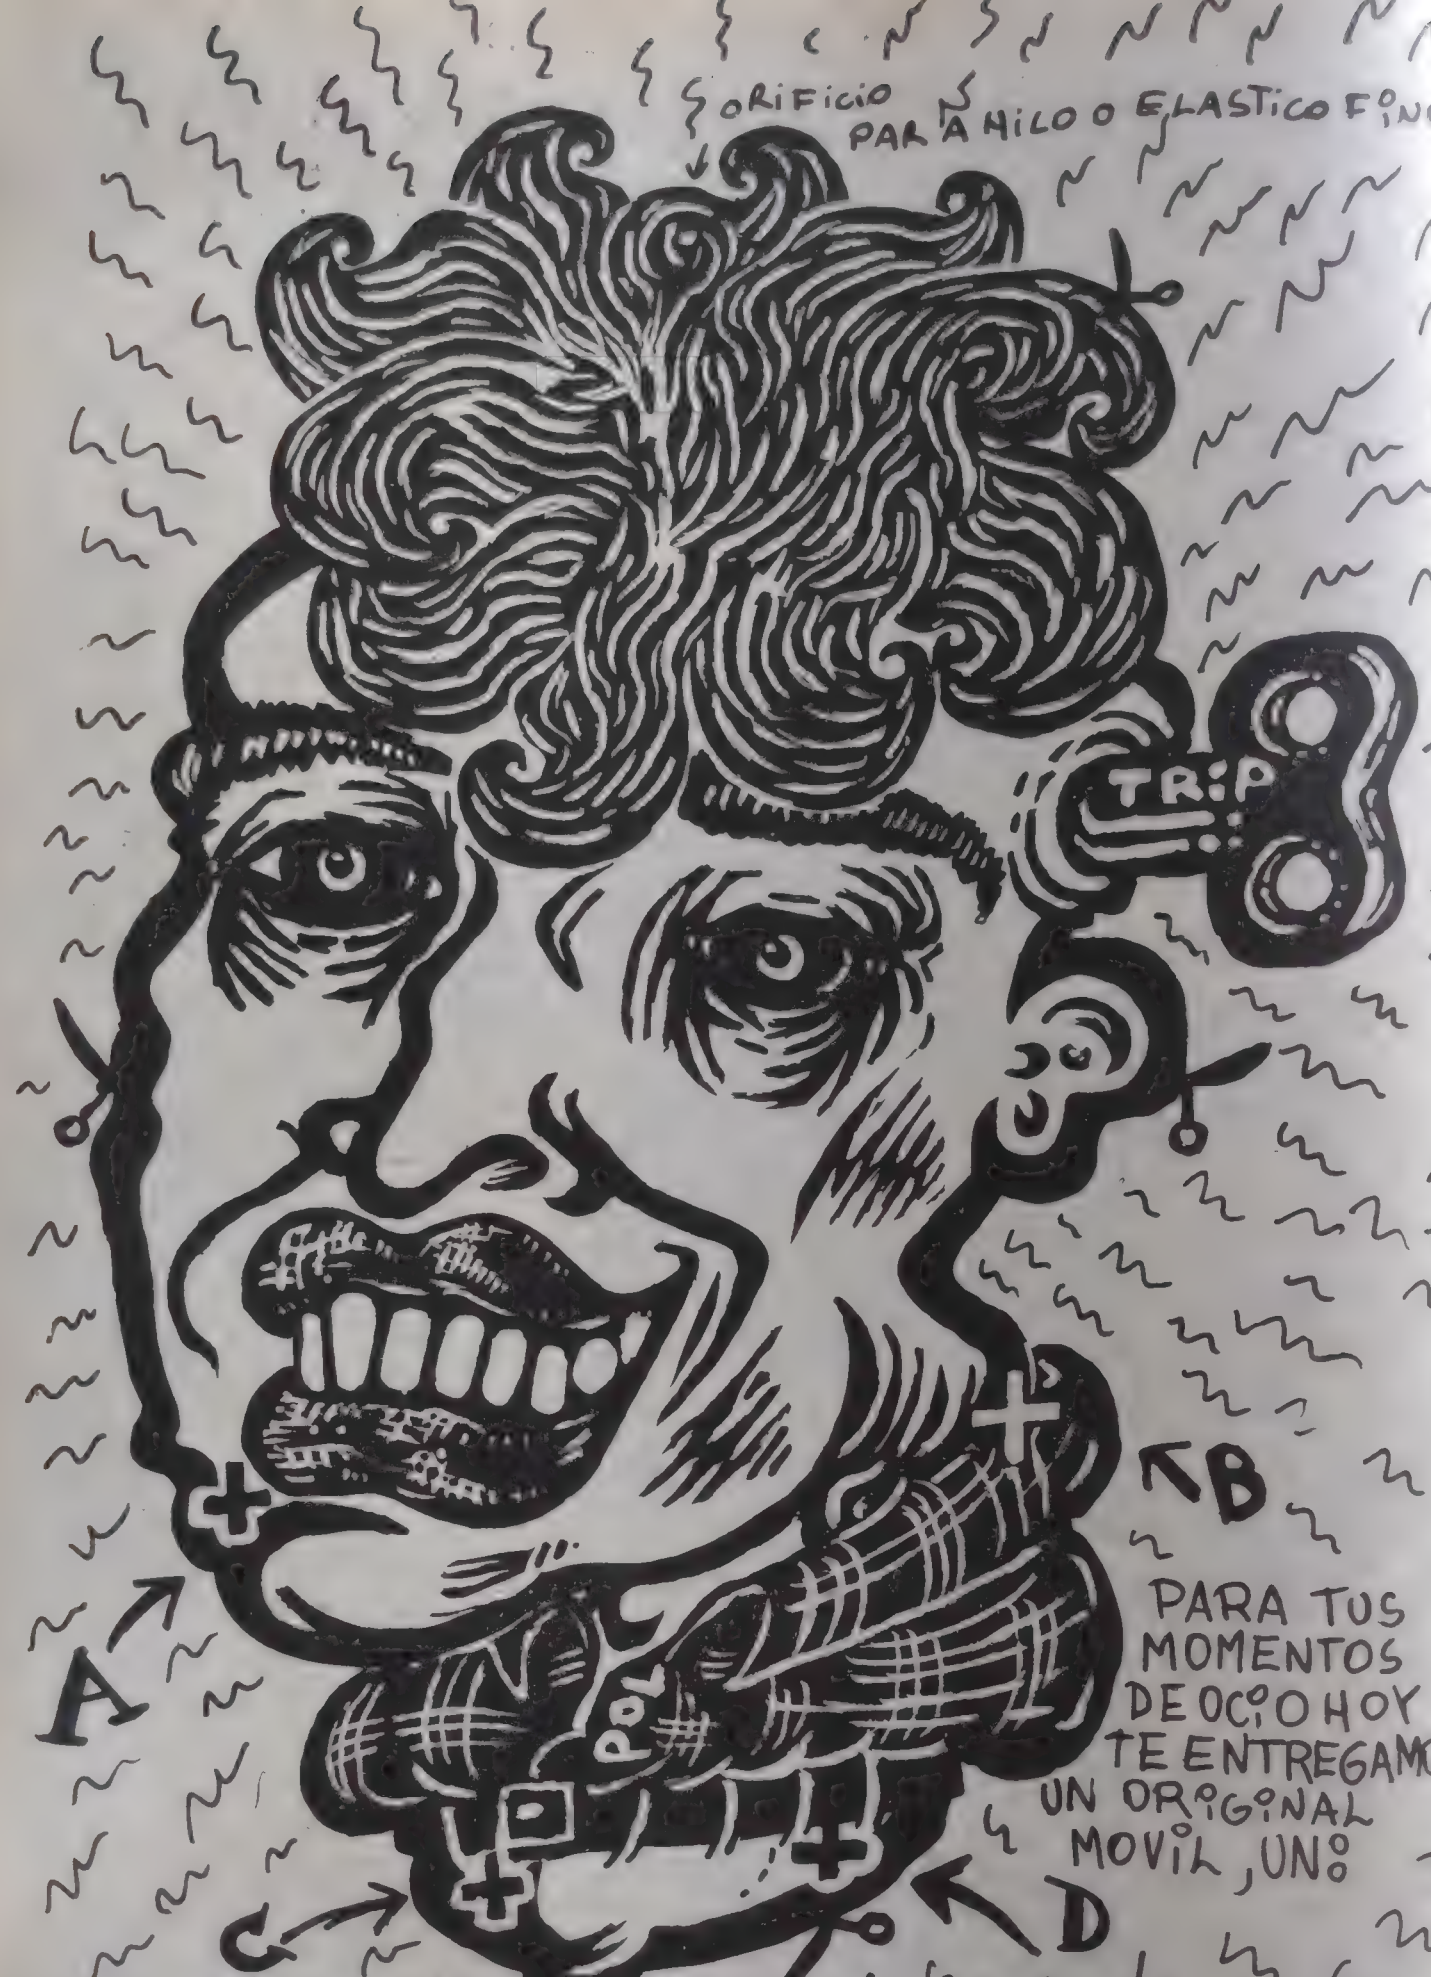 ORiFiCiO
PARA HiLO O ELASTICO FiN
TRiP
B
PARA TUS
MOMENTOS
DE OCiO HOY
TE ENTREGAMO
UN ORiGiNAL
MOViL, UNO
A
POL
C
D